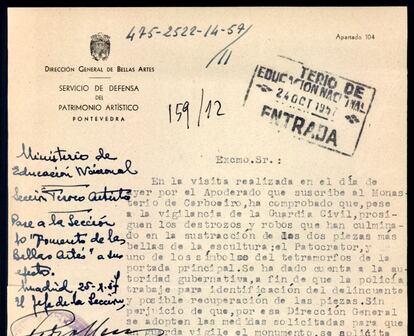 475-2522-14-57
/11
Apartado 104
DIRECCIÓN GENERAL DE BELLAS ARTES
SERVICIO DE DEFENSA
DEL
PATRIMONIO ARTÍSTICO
PONTEVEDRA
159/12
TERIO DE
EDUCACIÓN NACIONAL
24 OCT 1957
ENTRADA
Ministerio de
Educación Nacional
Sección Tesoro Artístico
Pase a la Sección
"Fomento de las
Bellas Artes" a sus
efectos.
Madrid, 25-X-57
El Jefe de la Sección,
Excmo.Sr.:
En la visita realizada en el día de
ayer por el Apoderado que suscribe al Monas-
terio de Carboeiro, ha comprobado que, pese
a la vigilancia de la Guardia Civil, prosi-
guen los destrozos y robos que han culmina-
do en la sustracción de las dos piezas mas
bellas de la escultura; el Patocrator, y
uno de los símbolos del tetramorfos de la
portada principal. Se ha dado cuenta a la au-
toridad gubernativa, a fin de que la policía
trabaje para identificación del delincuente
y posible recuperación de las piezas. Sin
perjuicio de que, por esa Dirección General
se adopten las medidas solicitadas para que
vigile el monumento, se solicita